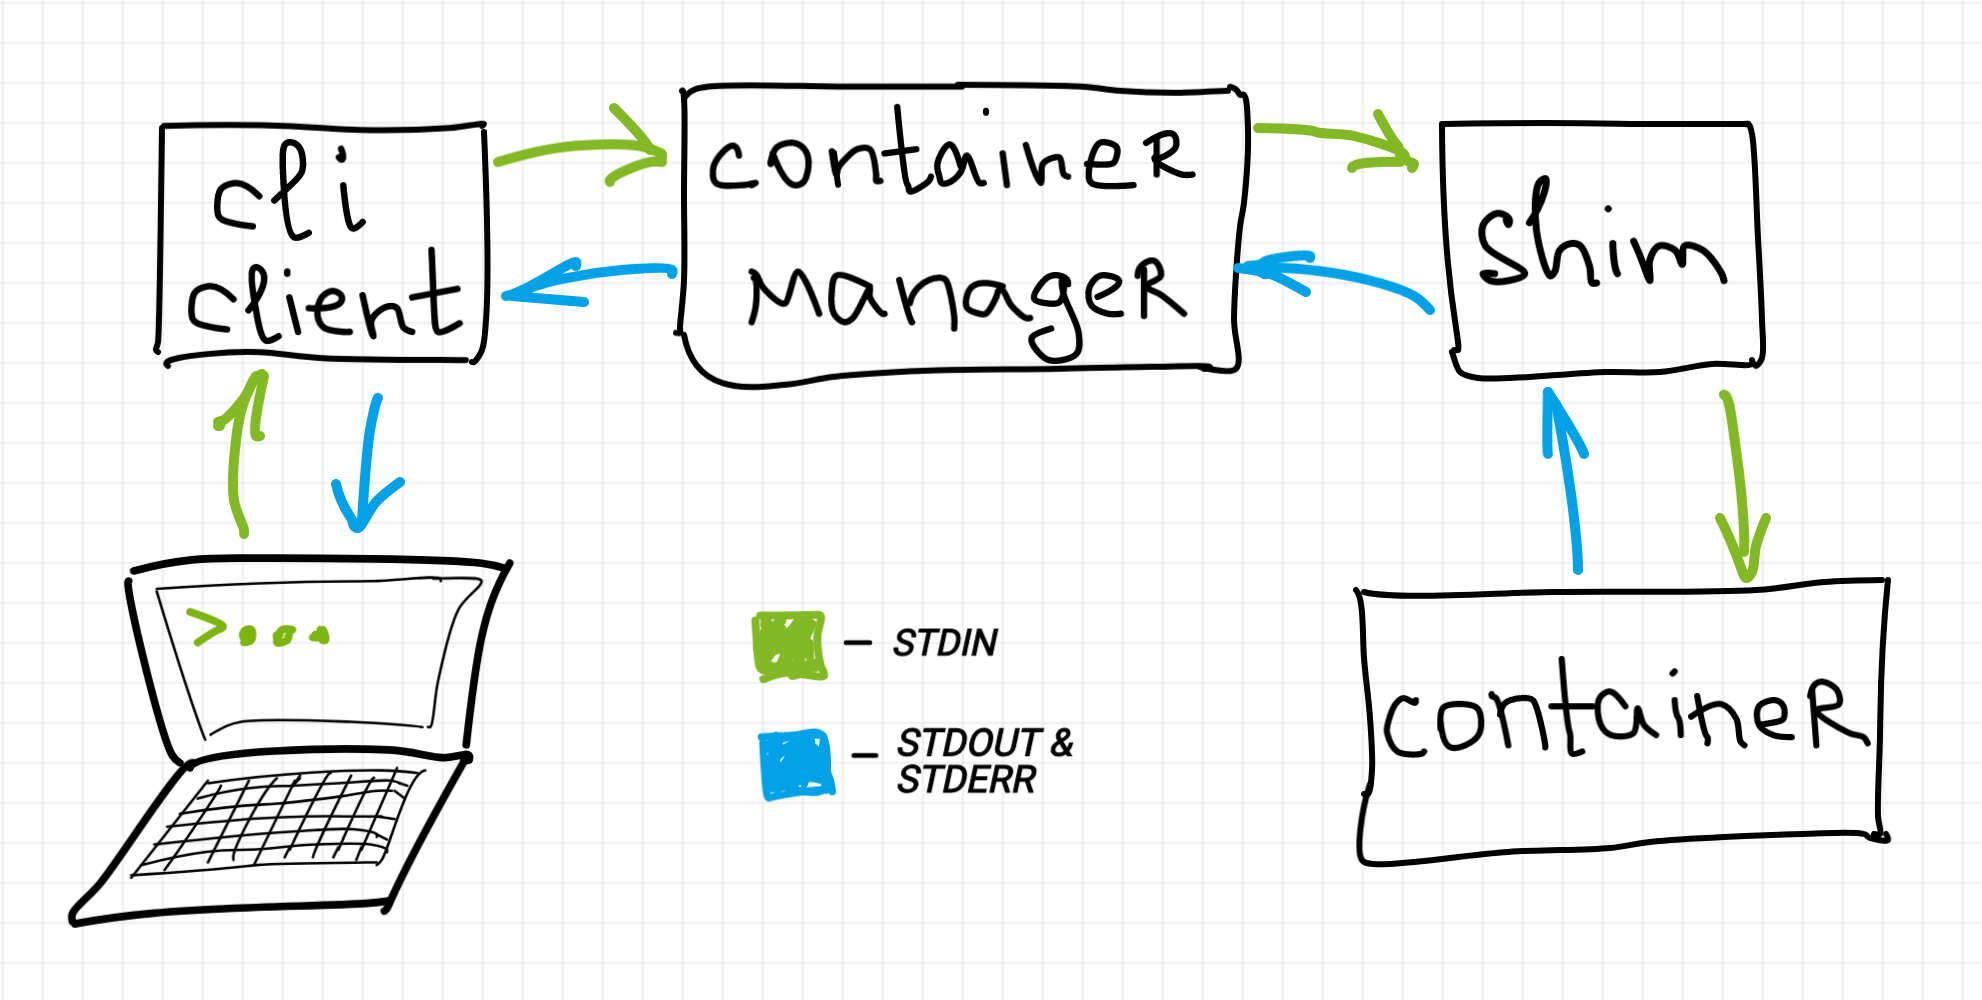 cli
client
container
manager
shim
>...
— STDIN
— STDOUT &
STDERR
container